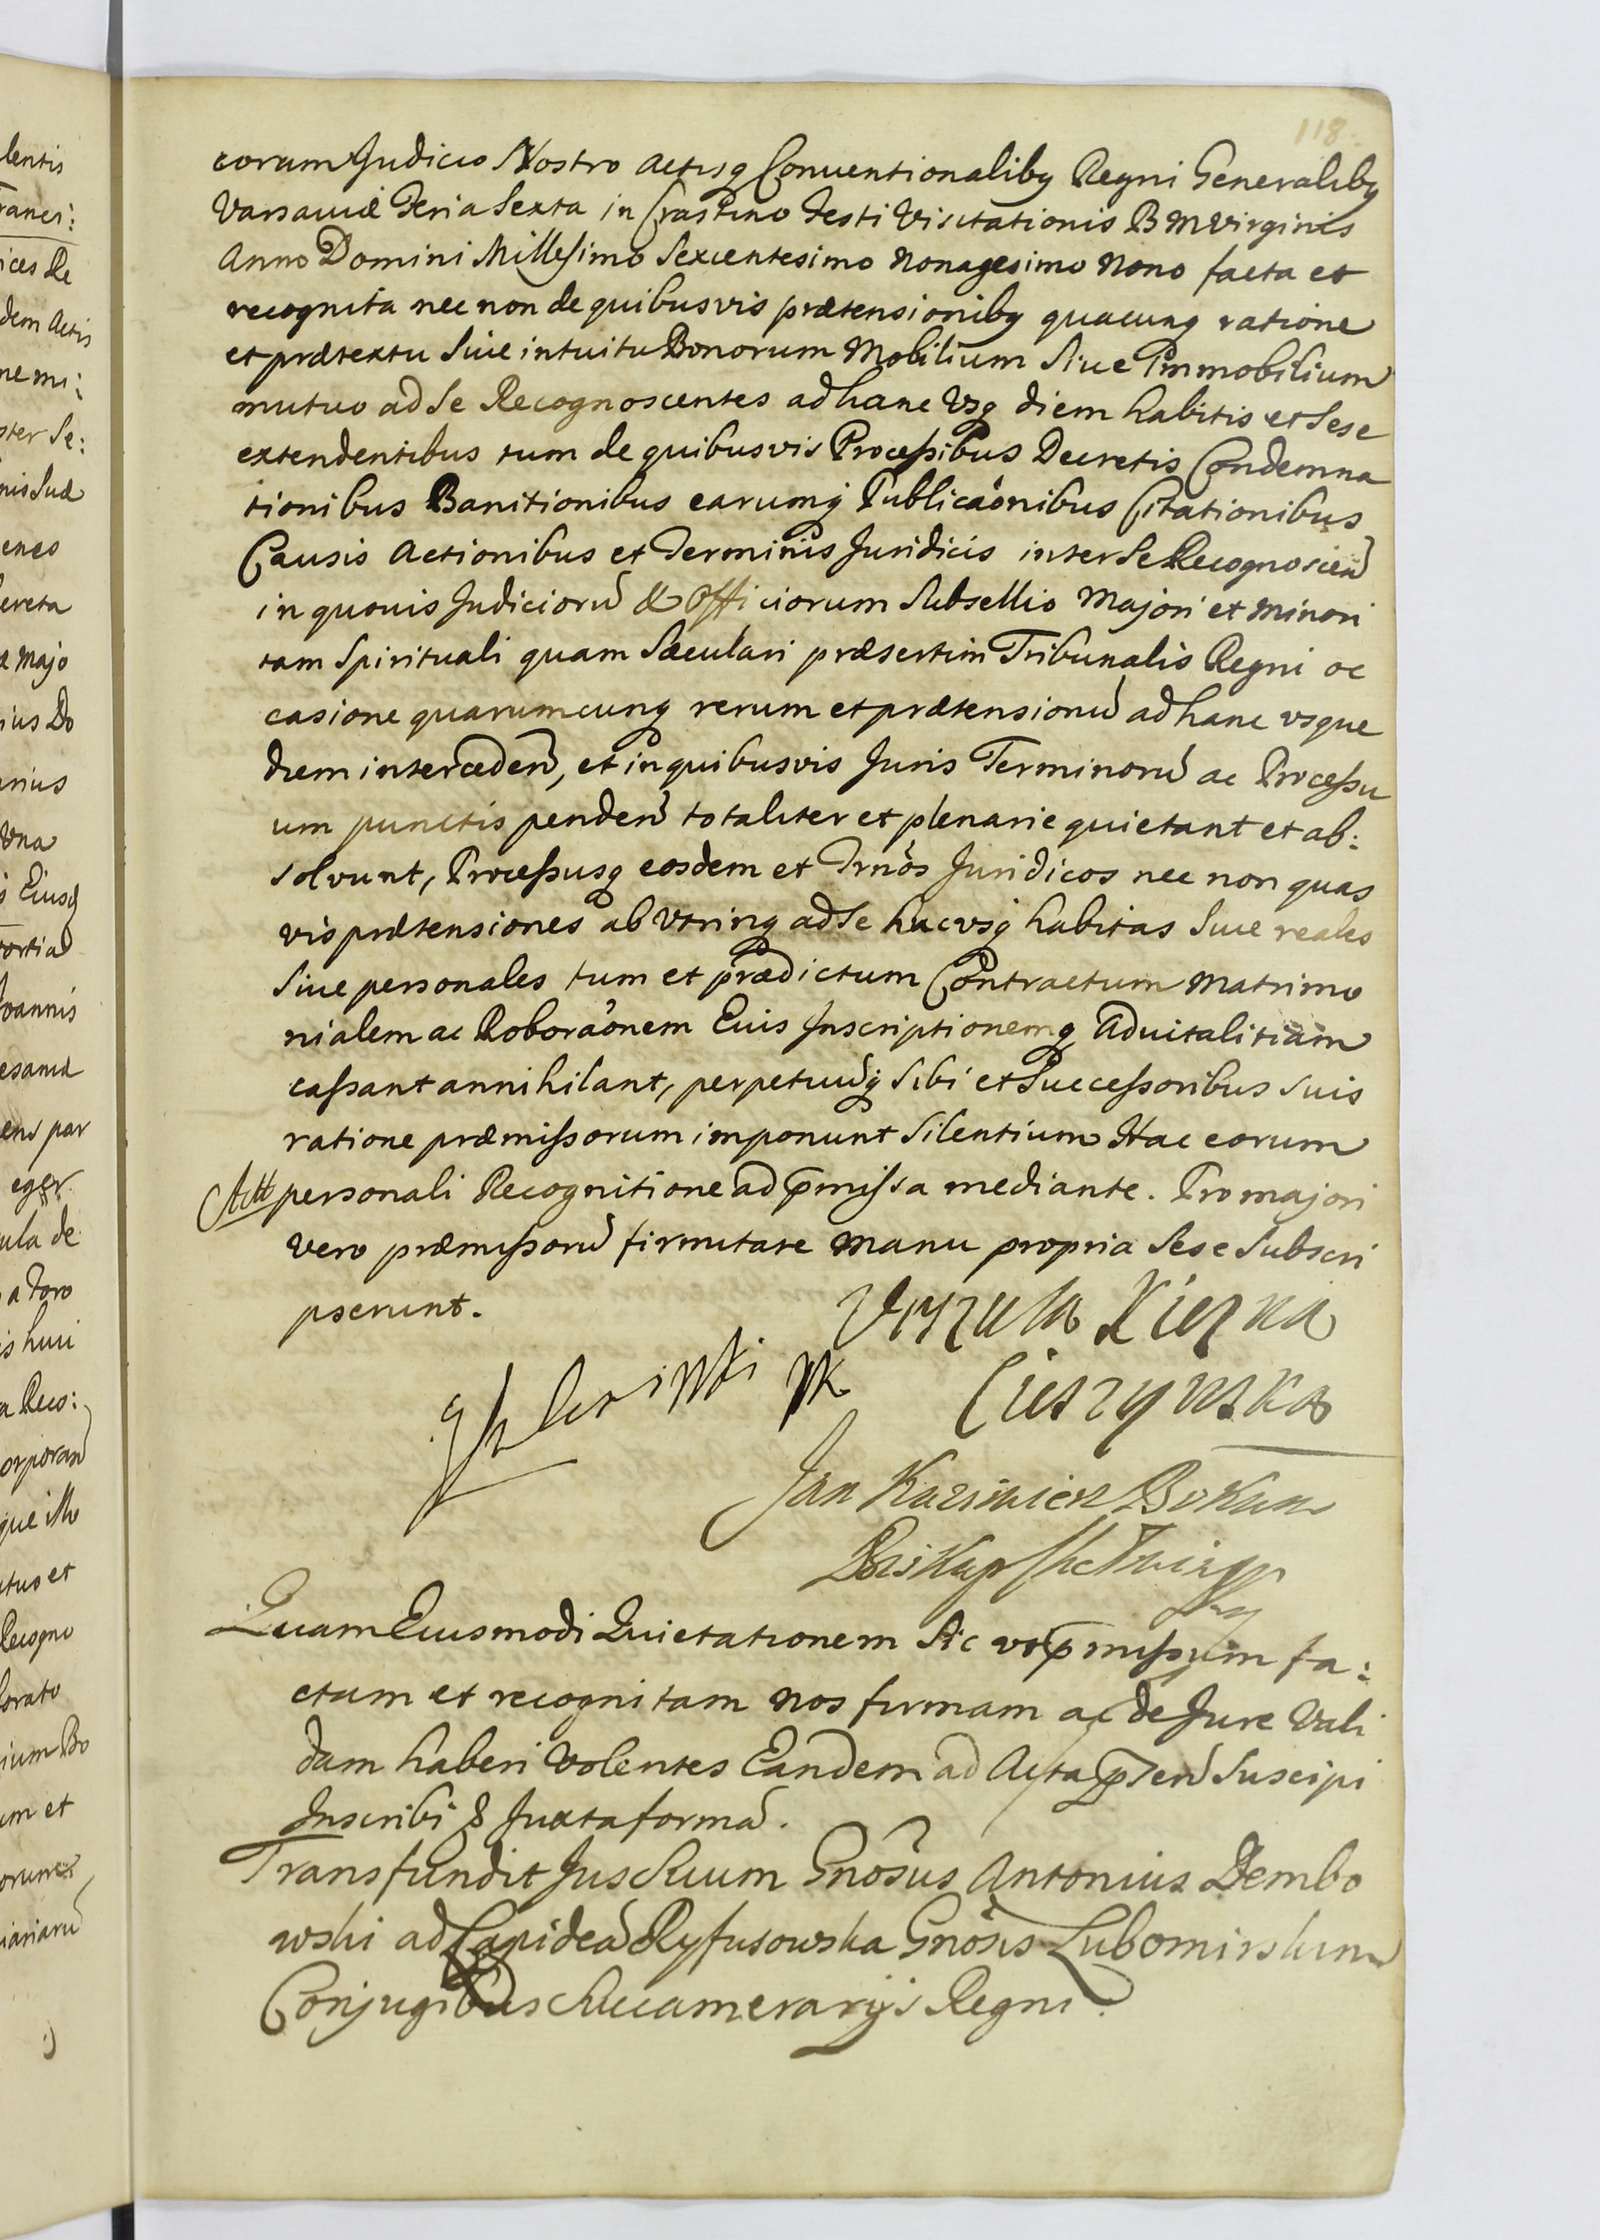 118.
coram Judicio Nostro Actisq Conventionalibq Regni Generalibq
Varsaviæ Feria Sexta in Crastino Festi Visitationis B M Virginis
Anno Domini Millesimo Sexcentesimo Nonagesimo Nono facta et
recognita nec non de quibusvis prætensionibq quacunq ratione
et prætextu Sive intuitu Bonorum Mobilium Sive Immobilium
mutuo ad Se Recognoscentes ad hanc Vsq diem habitis et Sese
extendentibus tum de quibusvis Processibus Decretis Condemna
tionibus Banitionibus earumq Publicaõnibus Citationibus
Causis Actionibus et Terminis Juridicis inter Se Recognoscen
in quovis Judiciorũ & Officiorum Subsellio Majori et Minori
tam Spirituali quam Sæculari præsertim Tribunalis Regni oc
casione quarumcunq rerum et prætensionũ ad hanc vsque
diem interceden, et in quibusvis Juris Terminorũ ac Processu
um punctis penden totaliter et plenarie quietant et ab:
solvunt, Processusq eosdem et Trnõs Juridicos nec non quas
vis prætensiones ab Vtrinq ad Se hucvsq habitas Sive reales
Sive personales tum et prædictum Contractum Matrimo
nialem ac Roboraõnem Eius Inscriptionemq Advitalitiam
cassant annihilant, perpetuũq Sibi et Successoribus Suis
ratione præmissorum imponunt Silentium Hac eorum
personali Recognitione ad pmissa mediante. Pro majori
vero præmissorũ firmitate Manu propria Sese Subscri
pserunt.
Vrszula Xiezna
Cieszynska
Jan Kazimierz Bokum
Biskup
Quam Eiusmodi Quietationem Sic vt pmissum fa:
ctam et recognitam Nos firmam ac de Jure Vali
dam haberi Volentes Eandem ad Acta pnten Suscipi
Inscribi & Juxta formã.
Transfundit Jus Suum Gnõsus Antonius Dembo
wski ad Lapideã Ryfusowska Gnõsis Lubomirskim
Conjugibus Succamerarijs Regni.